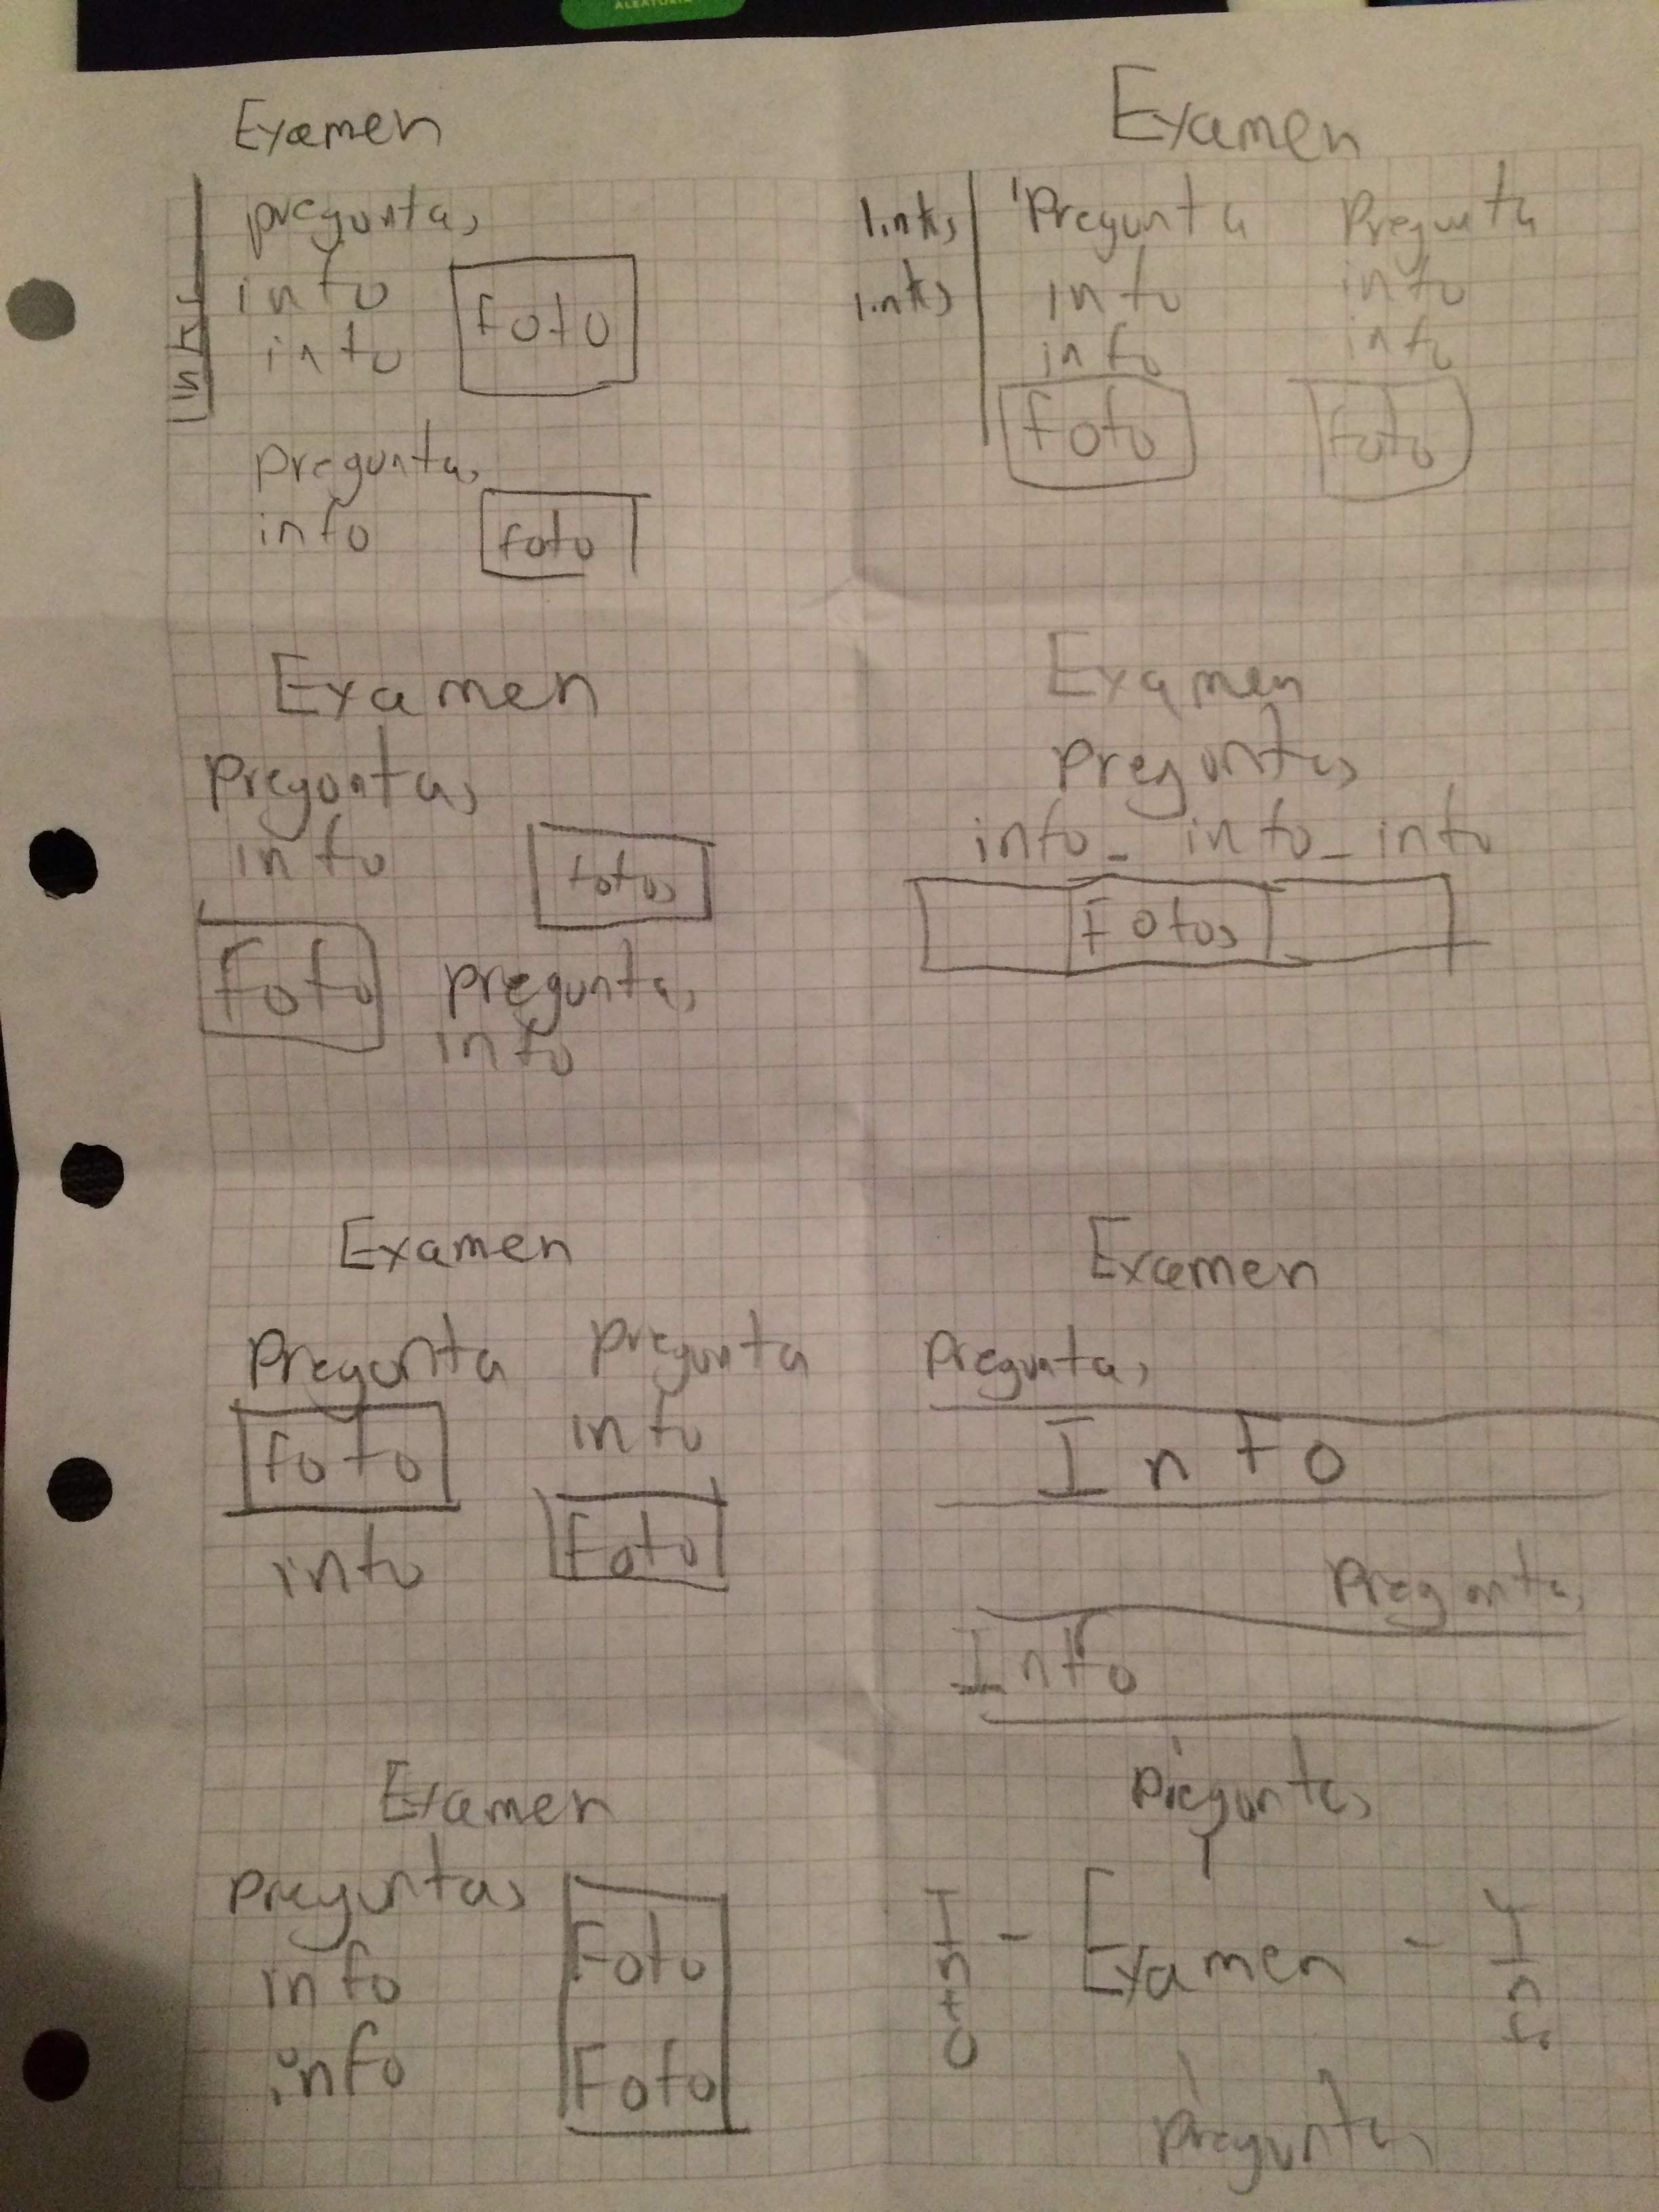 ALEATORIA
Examen
preguntas
info
info
foto
links
preguntas
info
foto
Examen
links
links
Pregunta
info
info
foto
Pregunta
info
info
foto
Examen
Preguntas
info
fotos
foto
preguntas
info
Examen
Preguntas
info - info - info
Fotos
Examen
Pregunta
foto
info
Pregunta
info
Foto
Examen
Preguntas
Info
Preguntas
Info
Examen
Preguntas
info
info
Foto
Foto
Preguntas
Info - Examen - Info
Preguntas